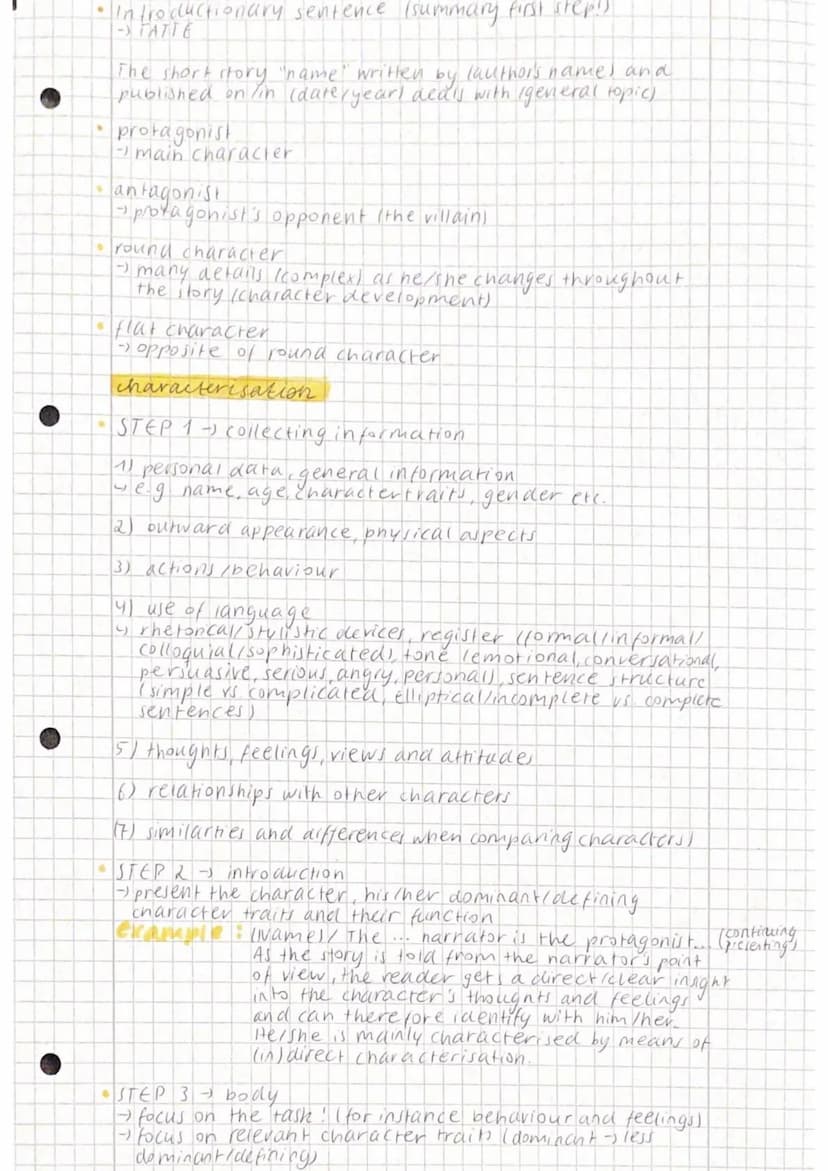 • Introductionary sentence (summary first step!)
→ TATTE
The short story "name" written by (author's name) and
published on/in (date/year) deals with (general topic)
• protagonist
→ main character
• antagonist
→ protagonist's opponent (the villain)
• round character
→ many details (complex) as he/she changes throughout
the story (character development)
• flat character
→ opposite of round character
characterisation
• STEP 1 → collecting information
1) personal data, general information
↳ e.g name, age, charactertraits, gender etc.
2) outward appearance, physical aspects
3) actions/behaviour
4) use of language
↳ rhetorical/stylistic devices, register (formal/informal/
colloquial/sophisticated), tone (emotional, conversational,
persuasive, serious, angry, personal), sentence structure
(simple vs complicated, elliptical/incomplete vs. complete
sentences)
5) thoughts, feelings, views and attitudes
6) relationships with other characters
(7) similarties and differences when comparing characters)
• STEP 2 → introduction
→ present the character, his/her dominant/defining
character traits and their function
example: (Names/ The ... narrator is the protagonist... (continuing
presenting)
As the story is told from the narrator's point
of view, the reader gets a direct/clear insight
into the character's thoughts and feelings
and can therefore identify with him/her.
He/she is mainly characterised by means of
(in)direct characterisation.
• STEP 3 → body
→ focus on the task! (for instance behaviour and feelings)
→ focus on relevant character traits (dominant → less
dominant/defining)